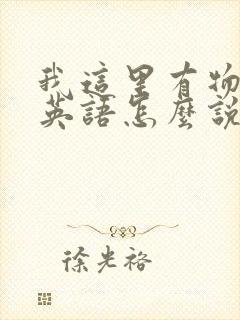 我這里有物
英語怎麼說
徐光裕